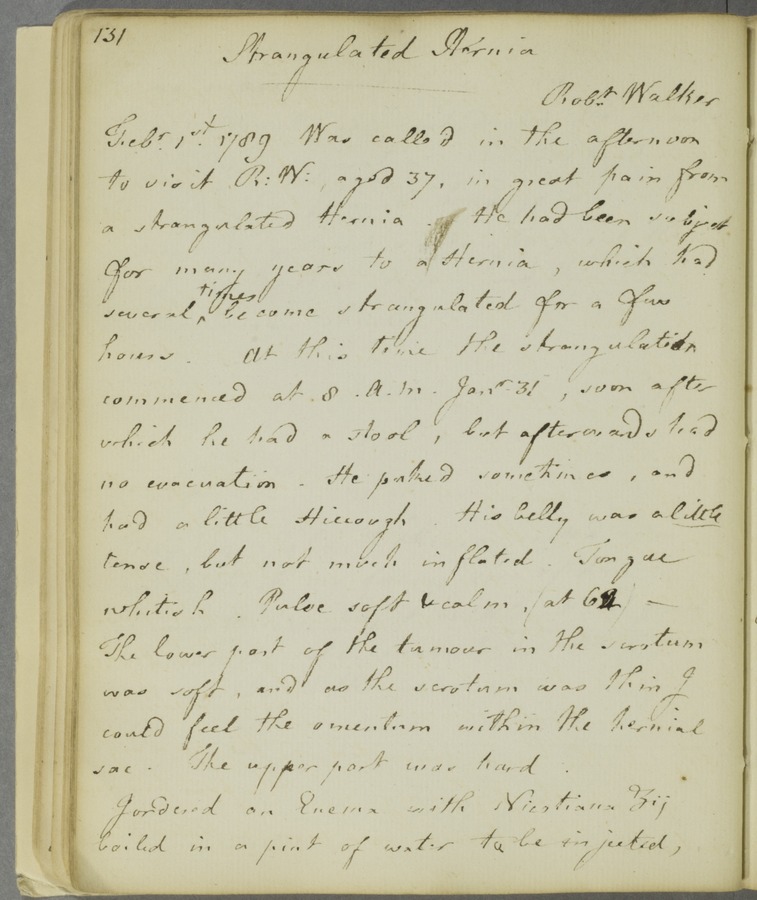 131
Strangulated Hernia
Robt. Walker
Febr. 1st. 1789 Was called in the afternoon
to visit R: W:, aged 37, in great pain from
a strangulated Hernia. He had been subject
for many years to a Hernia, which had
several times become strangulated for a few
hours. At this time the strangulation
commenced at 8. A.M. Janr. 31, soon after
which he had a stool, but afterwards had
no evacuation. He puked sometimes, and
had a little Hiccough. His belly was a little
tense, but not much inflated. Tongue
whitish. Pulse soft & calm, (at 62) —
The lower part of the tumour in the scrotum
was soft, and as the scrotum was thin I
could feel the omentum within the hernial
sac. The upper part was hard.
I ordered an Enema with Nicotiana ʒij
boiled in a pint of water to be injected,